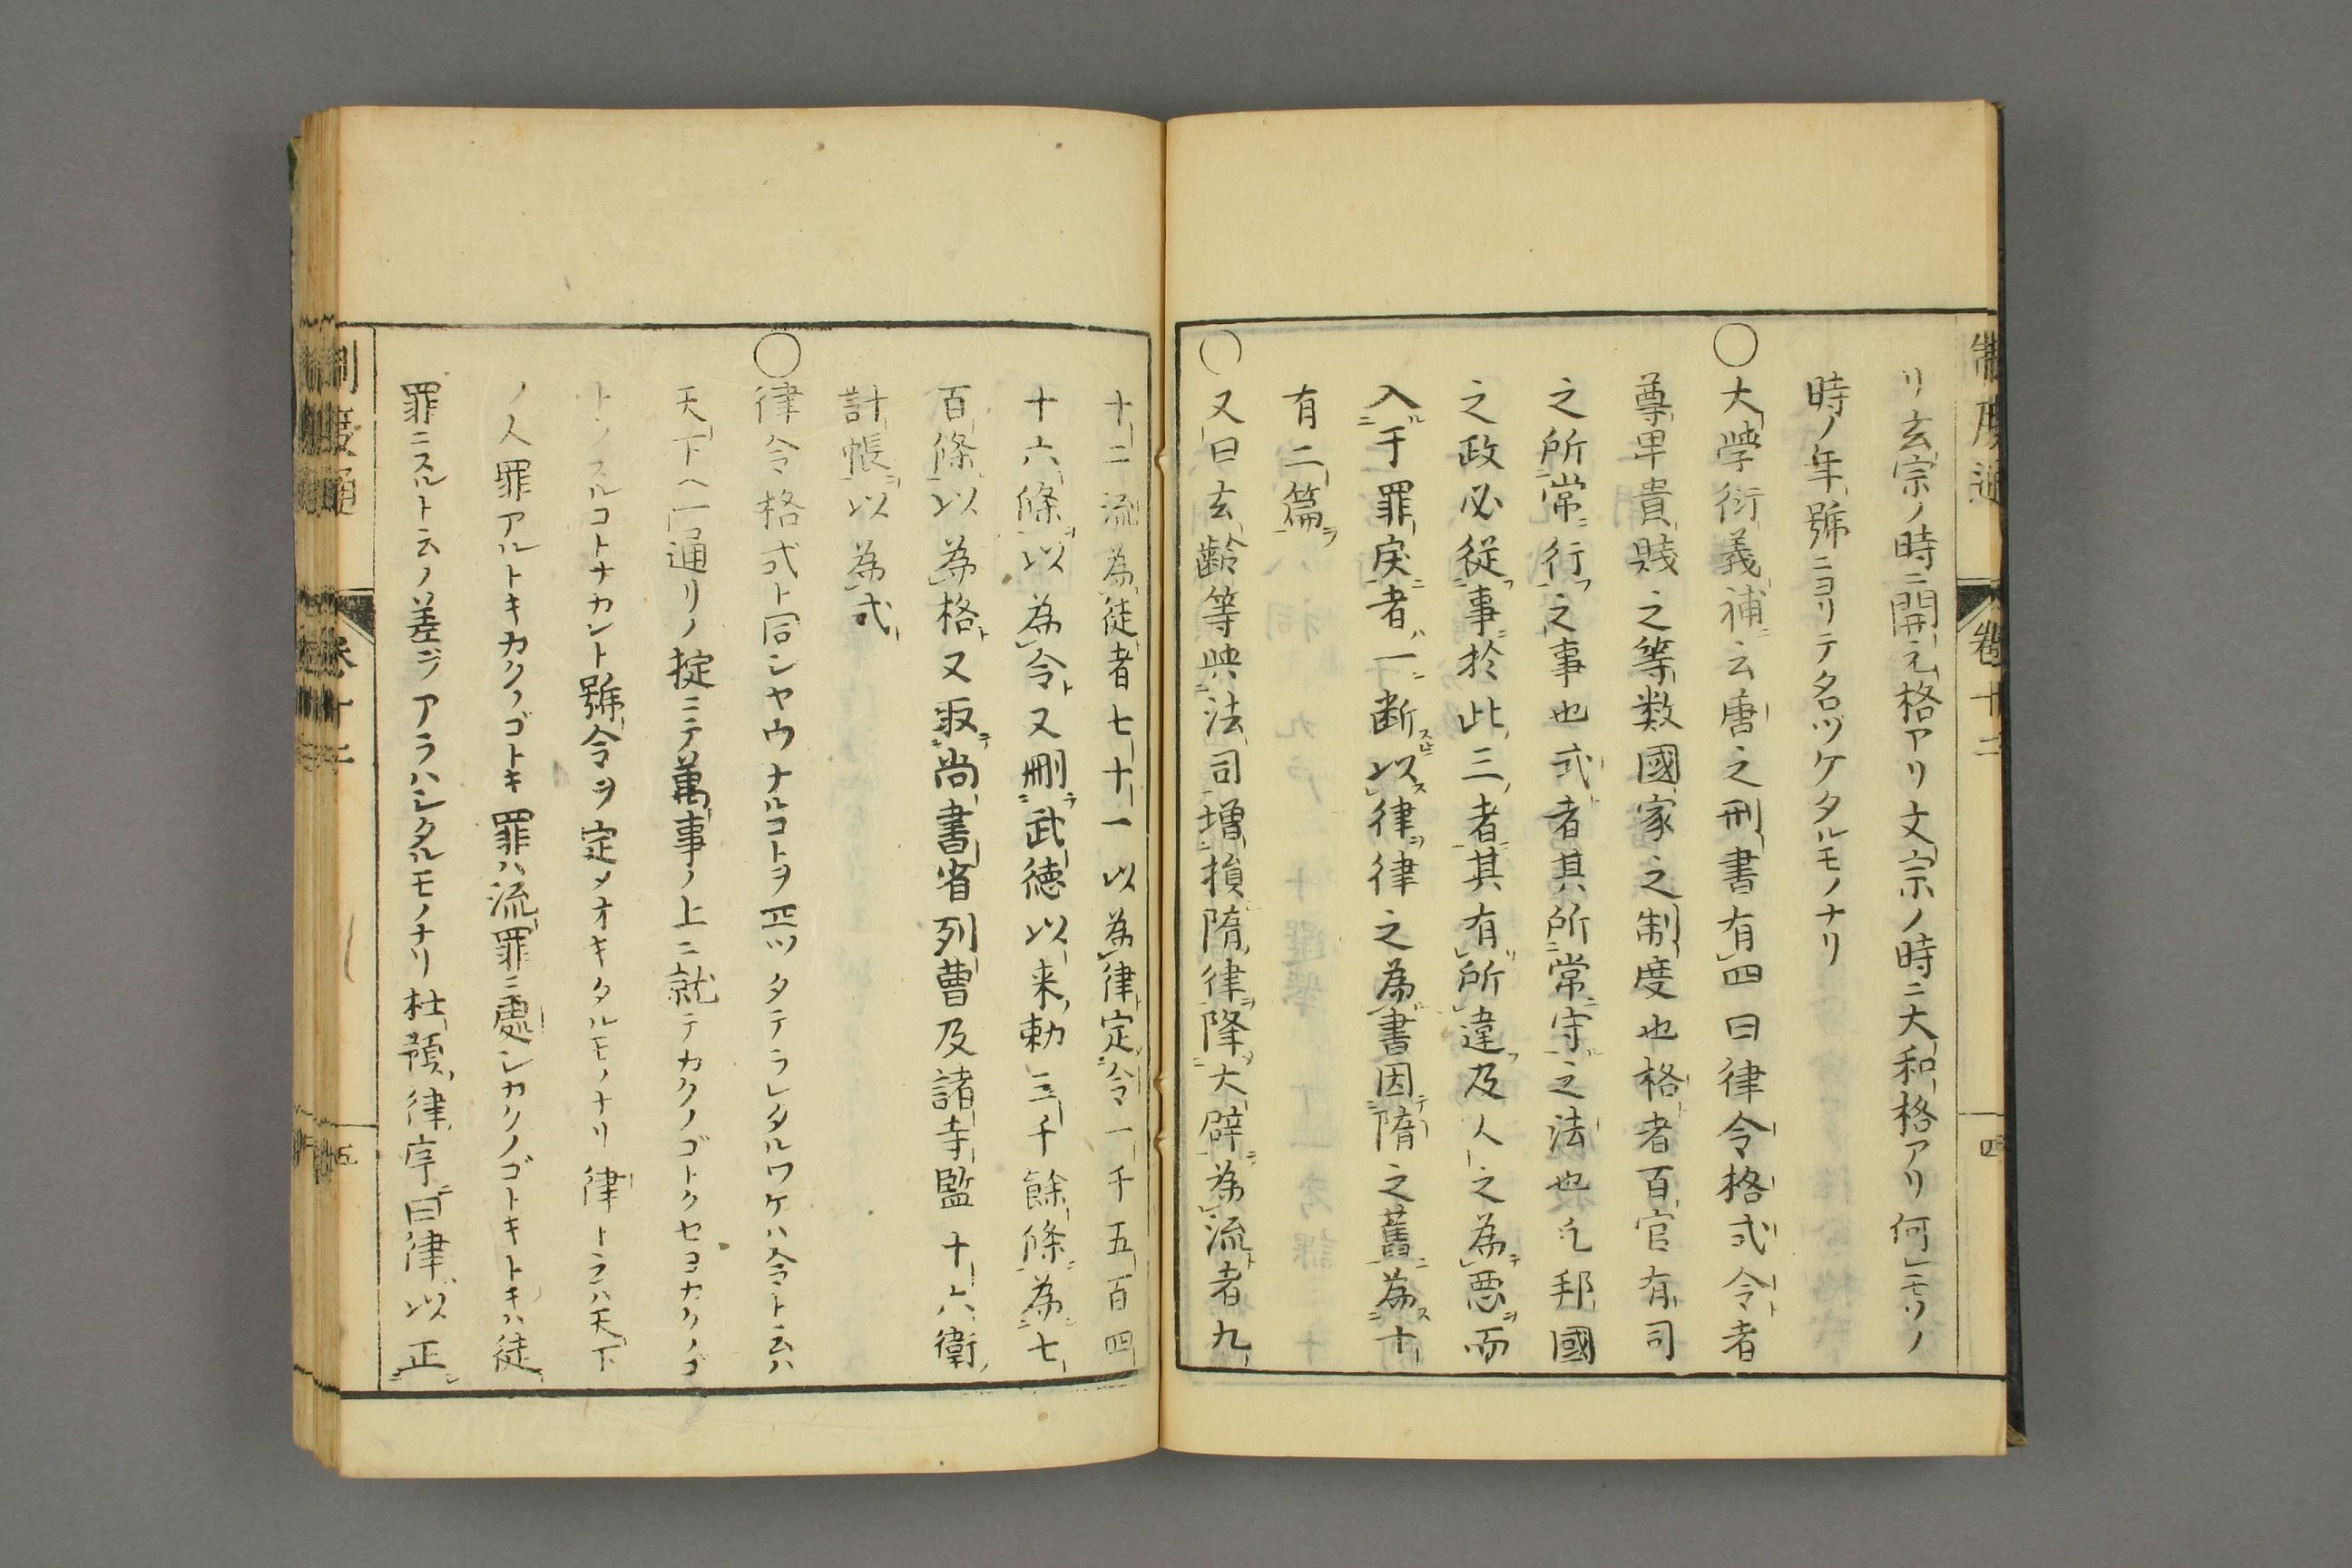 制度通 卷十二 四
リ玄宗ノ時ニ開元格アリ文宗ノ時ニ大和格アリ何レモソノ
時ノ年號ニヨリテ名ヅケタルモノナリ
〇大學衍義補ニ云唐之刑書有四曰律令格式令者
尊卑貴賤之等数國家之制度也格者百官有司
之所常行之事也式者其所常守之法也凡邦國
之政必從事於此三者其有所違及人之為悪而
入于罪戾者一断以律律之為書因隋之舊為十
有二篇
〇又曰玄齡等與法司増損隋律降大辟為流者九
十二流為徒者七十一以為律定令一千五百四
十六條以為令又刪武徳以来勅三千餘條為七
百條以為格又取尚書省列曹及諸寺監十六衛
計帳以為式
〇律令格式ト同シヤウナルコトヲ四ツタテラレタルワケハ令ト云ハ
天下ヘ一通リノ掟ニテ萬事ノ上ニ就テカクノゴトクセヨカクノゴ
トクスルコトナカレト號令ヲ定メオキタルモノナリ律ト云ハ天下
ノ人罪アルトキカクノゴトキ罪ハ流罪ニ處シカクノゴトキトキハ徒
罪ニスルト云ノ差ヲアラハシタルモノナリ杜預律序曰律以正
制度通 卷十二 五